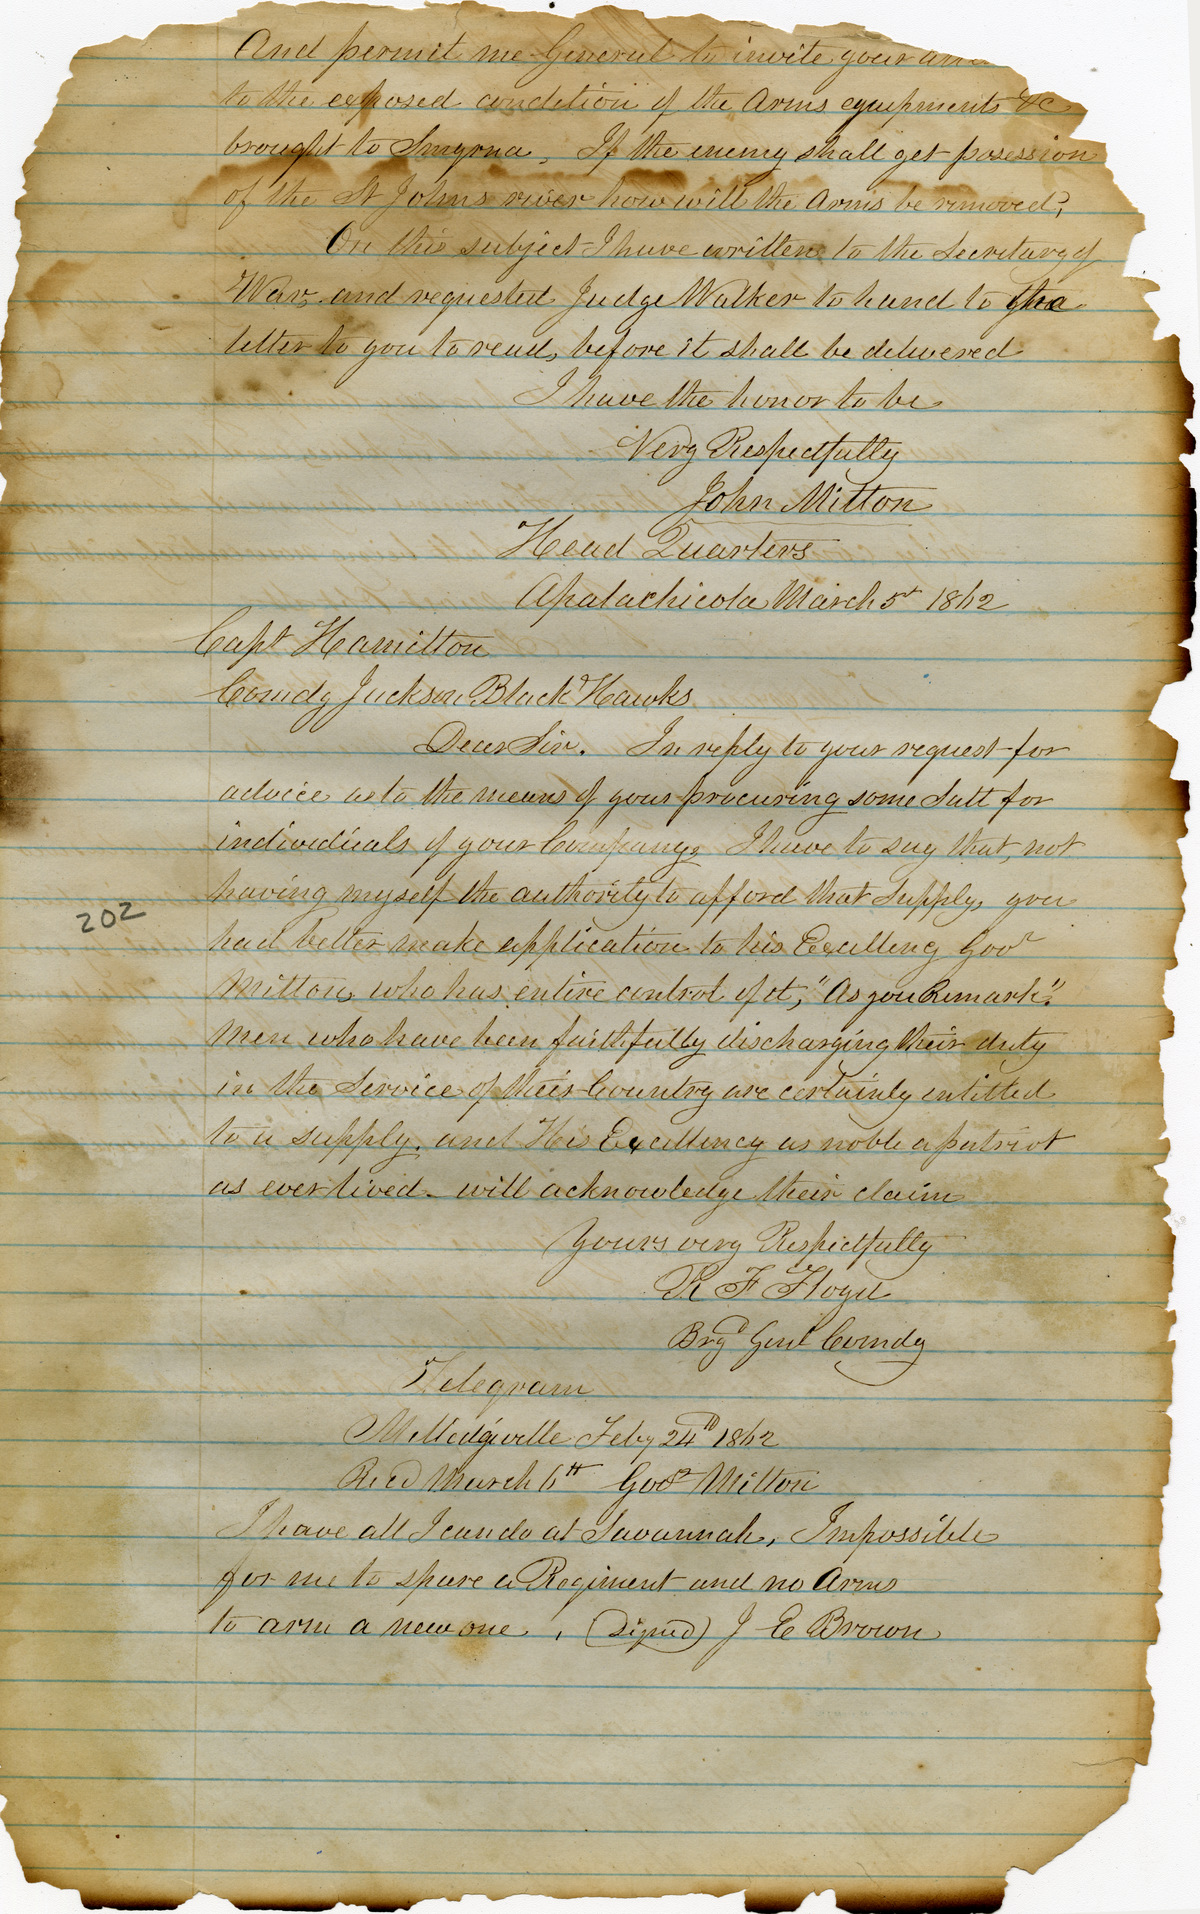 And permit me General to invite your
to the exposed condition of the Arms equipments &c
brought to Smyrna, If the enemy shall get posession
of the St Johns river how will the Arms be removed?
On this subject I have written to the Secretary of
War, and requested Judge Walker to hand to the
letter to you to read, before it shall be delivered
I have the honor to be
Very Respectfully
John Milton
Head Quarters
Apalachicola March 5th 1862
Capt Hamilton
Comdg Jackson Black Hawks
Dear Sir. In reply to your request for
advice as to the means of your procuring some Salt for
individuals of your Company, I have to say that, not
having myself the authority to afford that Supply, you
202
had better make application to his Excellency Govr
Milton, who has entire control of it, "As you Remark".
Men who have been faithfully discharging their duty
in the Service of their Country are certainly entitled
to a supply, and His Excellency as noble a patriot
as ever lived - will acknowledge their claim
Yours very Respectfully
R F Floyd
Brgd Genl Comdg
Telegram
Milledgeville Feby 24th 1862
Recd March 6th Govr Milton
I have all I can do at Savannah, Impossible
for me to spare a Regiment and no Arms
to arm a new one, (Signed) J E Brown